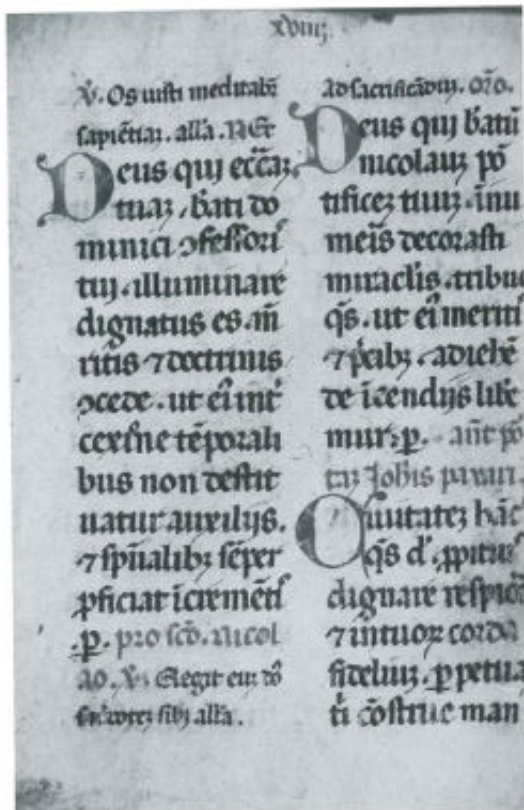 xviij
℣. Os iusti meditabr̄
sapiētiaz. all'a.
Deus qui ecc̄az
tuaz. b̄ati do
minici ↄfessoriſ
tuj. illuminare
dignatus es. m̄
ritis ⁊ doctrinis
ↄcede. ut ei int̄
cessōne tēporali
bus non destit
uatur auxilijs.
⁊ sp̄ualibꝫ sēper
ꝓficiat īcremētī
.ꝑ. pro sc̄o. nicol
ao. ℣. Elegit eū do
all'a.
ad or̄o.
Deus qui b̄atū
nicolauꝫ pō
tificeꝫ tuuꝫ. īnu
meīs decorasti
miracl'is. tribue
q̄s. ut ei meriti
⁊ p̄cibꝫ. a
de īcendijs libe
mur. ꝑ. ant̄ po
Ioh̄is
Ciuitateꝫ hāc
q̄s d̄. ꝓpitiuſ
dignare respice
⁊ intuoꝝ corda
fideliuꝫ. ꝑpetua
ti cōstrue man